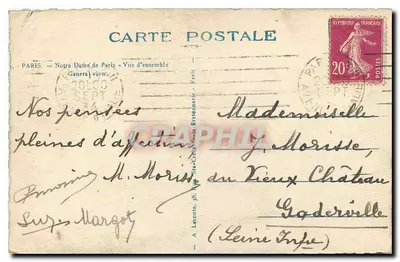 CARTE POSTALE
PARIS. - Notre-Dame de Paris - Vue d'ensemble
General view.
REPUBLIQUE FRANÇAISE
20
POSTES
PARIS
SEPT
Nos pensées
pleines d'affection
M. Moriss
Suzes Margot
Mademoiselle
J. Morisse
du Vieux Château
Goderville
(Seine Infre)